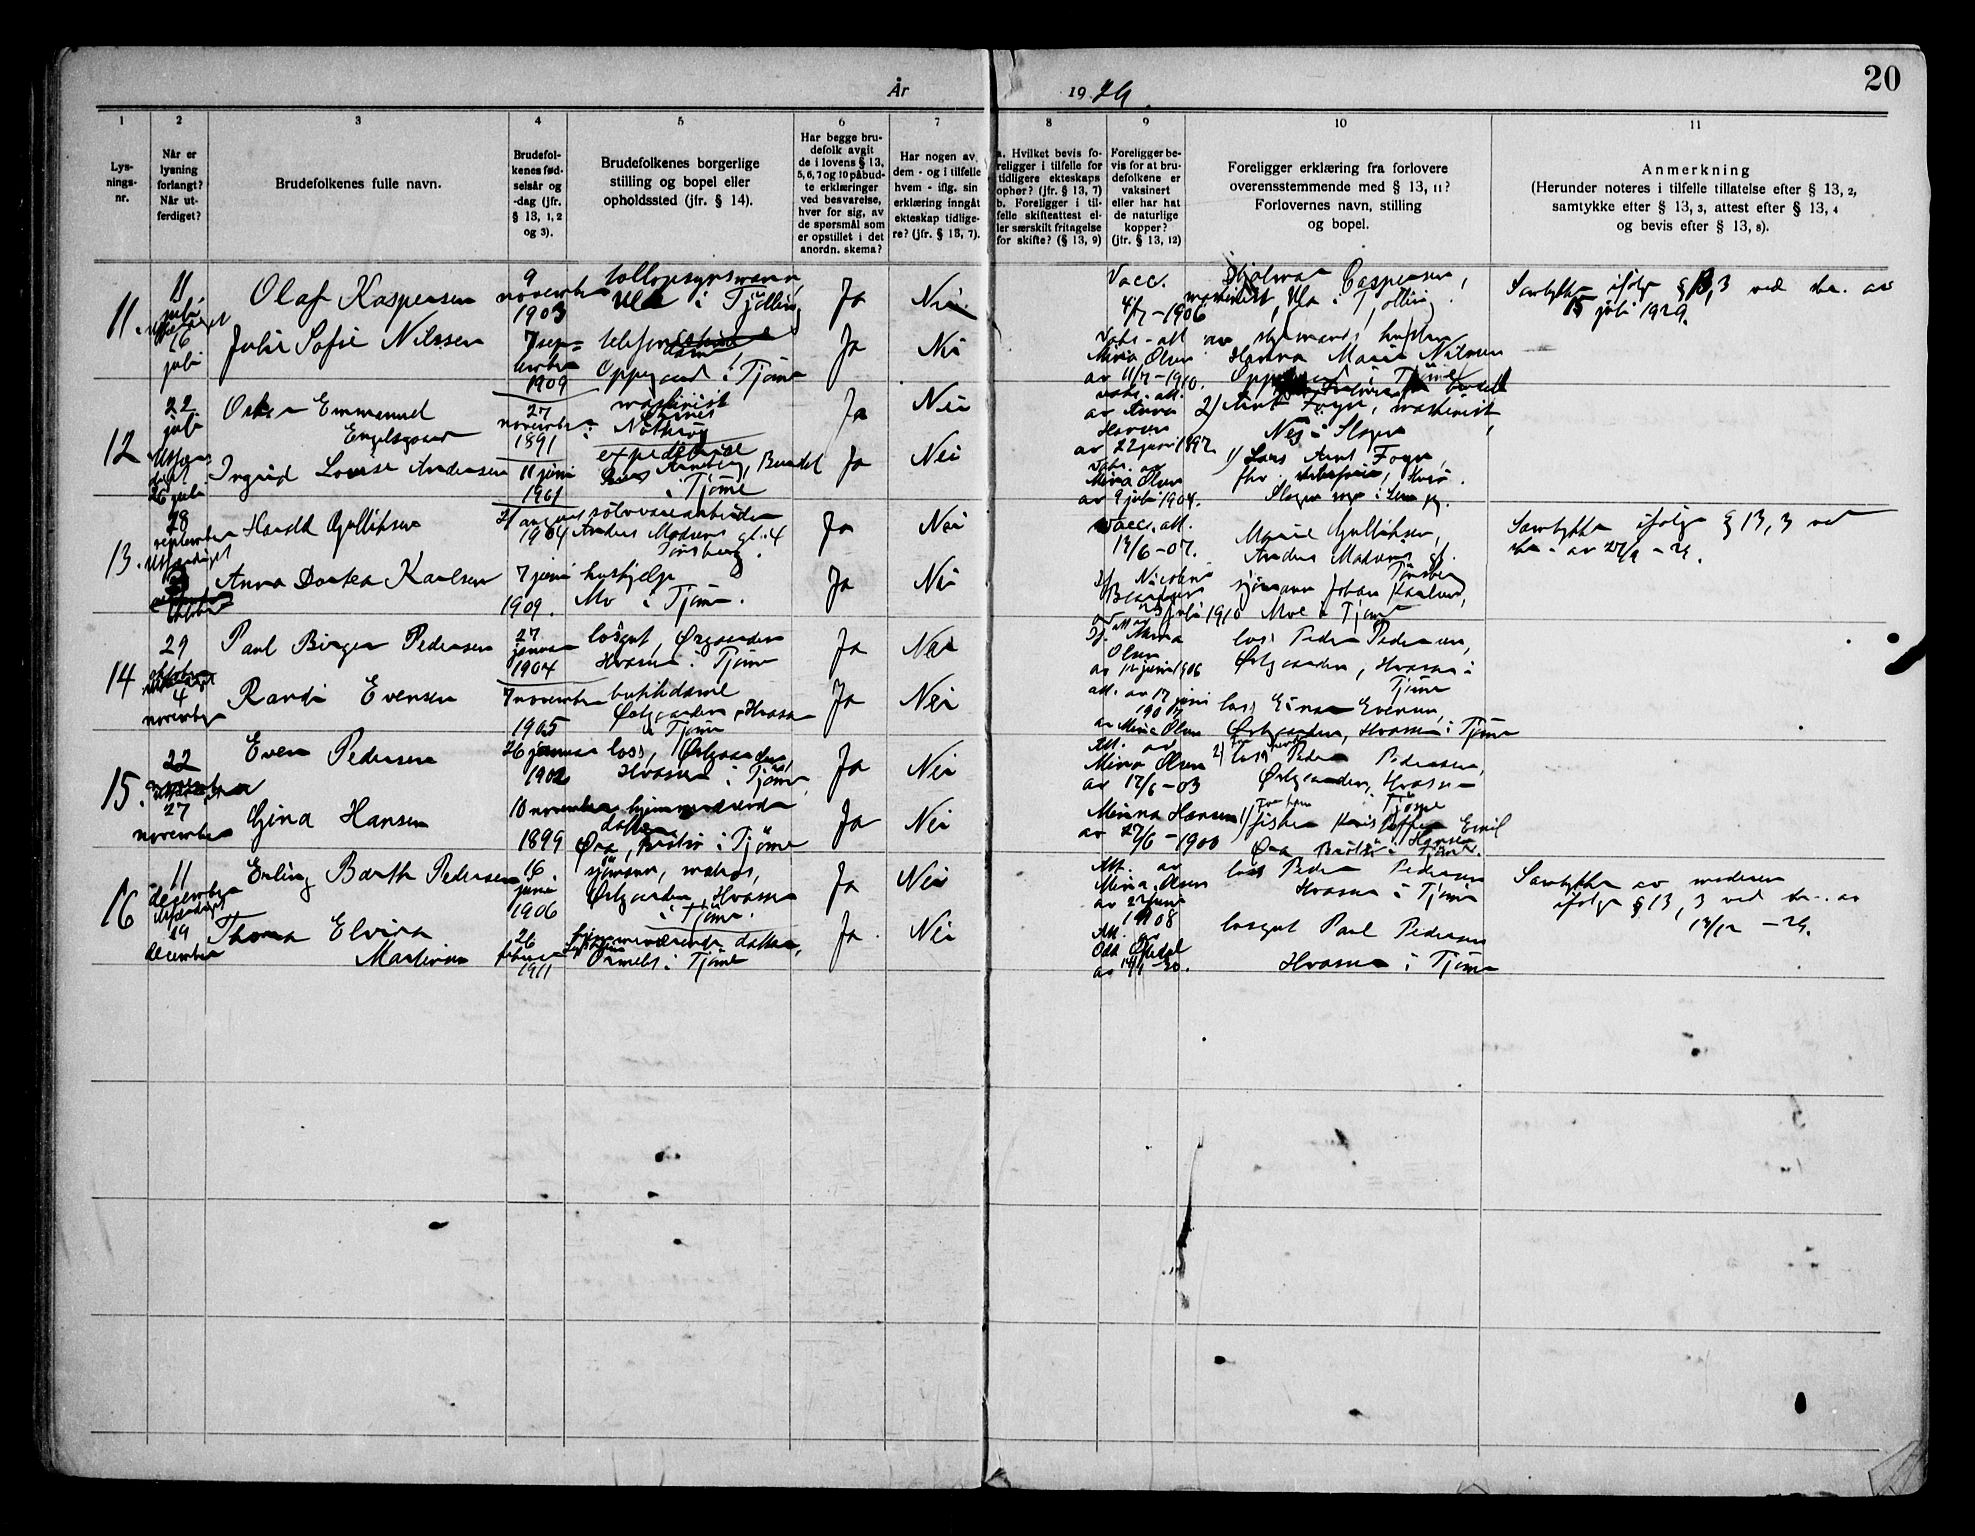 20
År 1929.
1 2 3 4 5 6 7 8 9 10 11
Lys-
nings-
nr.
Når er
lysning
forlangt?
Når ut-
ferdiget?
Brudefolkenes fulle navn.
Brudefol-
kenes fød-
selsår og
-dag (jfr.
§ 13, 1, 2
og 3).
Brudefolkenes borgerlige
stilling og bopel eller
opholdssted (jfr. § 14).
Har begge bru-
defolk avgit
de i lovens § 13,
5, 6, 7 og 10 påbud-
te erklæringer
ved besvarelse,
hver for sig, av
de spørsmål som
er opstillet i det
anordn. skema?
Har nogen av
dem - og i tilfelle
hvem - iflg. sin
erklæring inngåt
ekteskap tidlige-
re? (jfr. § 13, 7).
a. Hvilket bevis fo-
religger i tilfelle for
tidligere ekteskaps
ophør? (jfr. § 13, 7)
b. Foreligger i til-
felle skifteattest el-
ler særskilt fritagelse
for skifte? (§ 13, 9)
Foreligger be-
vis for at bru-
defolkene er
vaksinert
eller har hat
de naturlige
kopper?
(jfr. § 13, 12)
Foreligger erklæring fra forlovere
overensstemmende med § 13, 11?
Forlovernes navn, stilling
og bopel.
Anmerkning
(Herunder noteres i tilfelle tillatelse efter § 13, 2,
samtykke efter § 13, 3, attest efter § 13, 4
og bevis efter § 13, 8).
11.
11
juli
utferdiget
16
juli
Olaf Kaspersen
9
november
1903
tollopsynsmann,
Ula i Tjølling
Ja
Nei
Vacc.
4/7 - 1906
Hjalmar Caspersen,
maskinist, Ula i Tjølling.
Samtykke ifølge § 13, 3 ved skr. av
15 juli 1929.
Julie Sofie Nilssen
7 sep-
tember
1909
Oppegaard i Tjøme
Ja
Nei
Mina Olsen
av 11/7 - 1910.
Hanna Marie Nilssen
Oppegaard i Tjøme
12
22
juli
26 juli
Oskar Emmanuel
Engelsgaar
27
november
1891
maskinist
i Nøtterøy
Ja
Nei
av Anna
Hansen
av 22 juni 1892.
2) Arnt Foyn, maskinist,
Nes i Slagen
Ingrid Louise Andersen
11 juni
1901
expeditrise
i Tjøme
Ja
Nei
Mina Olsen
av 9 juli 1904.
1) Lars Arnt Foyn
13.
28
september
utferdiget
3
oktober
Harald Gulliksen
21 august
1904
sølvvarearbeider
Anders Madsens gt. 4
Tønsberg.
Ja
Nei
Vacc. att.
13/6 - 07.
Marie Gulliksen,
Anders Madsens gt.
Tønsberg
Samtykke ifølge § 13, 3 ved
skr. av 27/9 - 29.
Anna Dortea Karlsen
7 juni
1909.
hushjelp
Mo i Tjøme.
Ja
Nei
juli 1910
sjømann Johan Karlsen,
Moe i Tjøme
14
29
oktober
4
november
Paul Birger Pedersen
27
januar
1904
losgut, Ørsgaarden
Hvasser i Tjøme
Ja
Nei
Mina
Olsen
av 12 juni 1906
los Peder Pedersen,
Ørsgaarden, Hvasser i
Tjøme
Randi Evensen
7 november
1905
butikkdame
Østgaarden, Hvasser
i Tjøme
Ja
Nei
att. av 17 juni
1907
av Mina Olsen
los Einar Evensen,
Østgaarden, Hvasser i Tjøme
15.
22
november
27
november
Even Pedersen
26 januar
1902
los, Østgaarden,
Hvasser i Tjøme
Ja
Nei
Att. av
Mina Olsen
av 17/6 - 03
2) los Peder Pedersen,
Østgaarden, Hvasser
i Tjøme
Gina Hansen
10 november
1899
hjemmeværende
datter
Øra, Brøtsø i Tjøme
Ja
Nei
Minna Hansen
av 27/6 - 1900
1) fisker Emil
Hansen
Øra Brøtsø i Tjøme.
16
11
desember
utferdiget
19
december
Erling Barth Pedersen
16
juni
1906
sjømann, matros,
Østgaarden, Hvasser
i Tjøme.
Ja
Nei
Att. av
Mina Olsen
av 22 juni
1908
los Peder Pedersen
Hvasser i Tjøme
Samtykke av moderen
ifølge § 13, 3 ved skr. av
13/12 - 29.
Thoma Elvira
Martinsen
26
februar
1911
hjemmeværende datter,
Ormelet i Tjøme
Ja.
Nei
Att. av
losgut Paul Pedersen
Hvasser i Tjøme